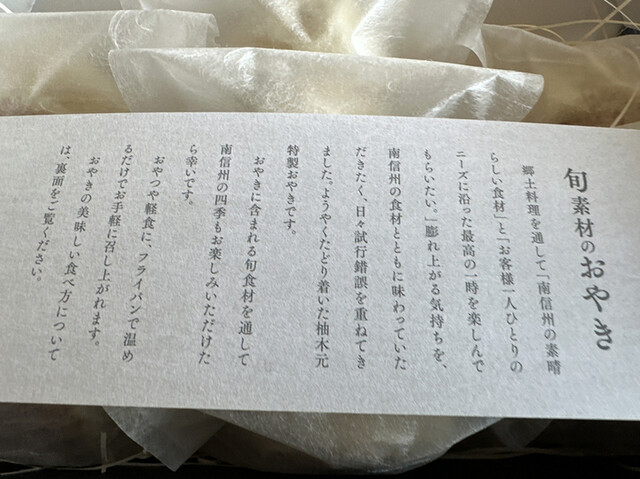 旬素材のおやき
郷土料理を通して「南信州の素晴
らしい食材」と「お客様一人ひとりの
ニーズに沿った最高の一時を楽しんで
もらいたい。」膨れ上がる気持ちを、
南信州の食材とともに味わっていた
だきたく、日々試行錯誤を重ねてき
ました。ようやくたどり着いた柚木元
特製おやきです。
おやきに含まれる旬食材を通して
南信州の四季もお楽しみいただけた
ら幸いです。
おやつや軽食に、フライパンで温め
るだけでお手軽に召し上がれます。
おやきの美味しい食べ方について
は、裏面をご覧ください。